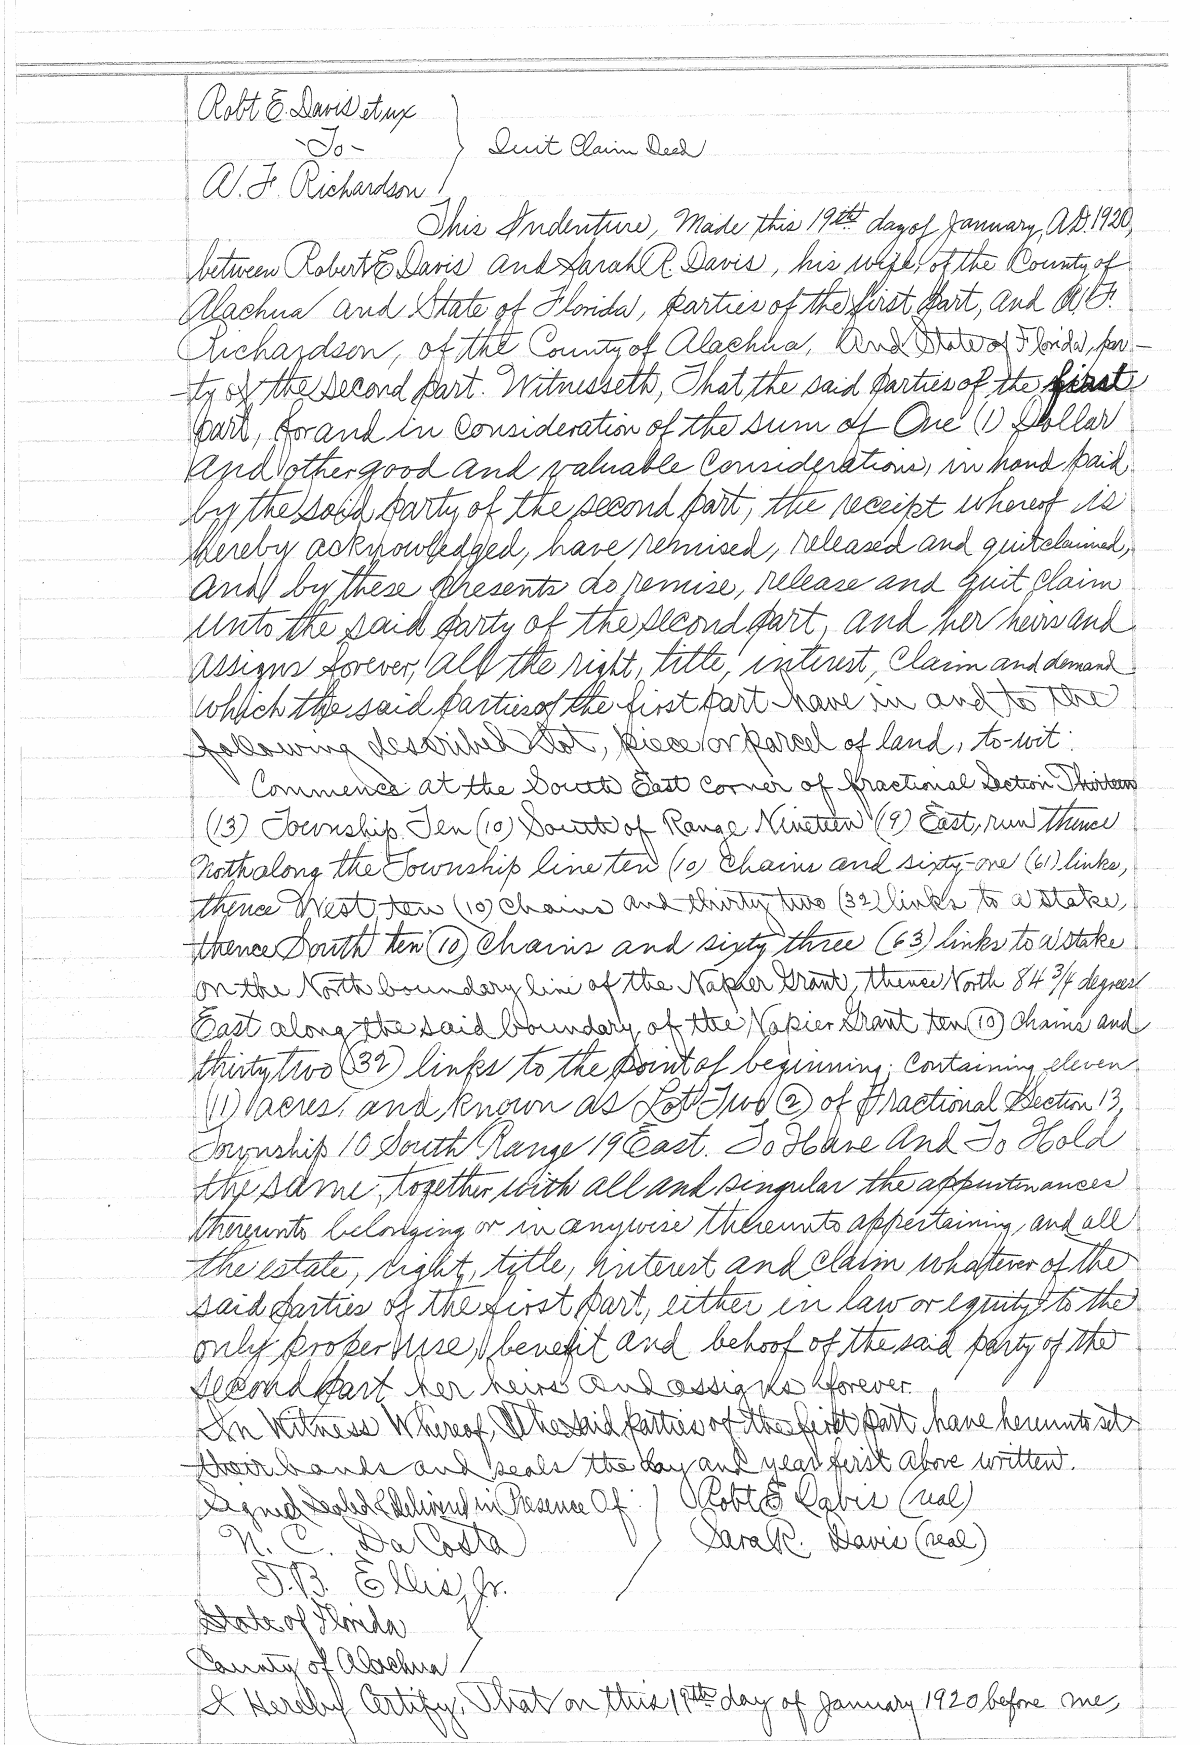 Robt E. Davis et ux
-To-
Quit Claim Deed
A. F. Richardson
This Indenture, Made this 19th day of January, A.D. 1920,
between Robert E Davis and Sarah R. Davis, his wife, of the County of
Alachua and State of Florida, parties of the first part, and A. F.
Richardson, of the County of Alachua, And State of Florida, par-
-ty of the second part. Witnesseth, That the said parties of the first
part, for and in consideration of the sum of One (1) Dollar
and other good and valuable considerations, in hand paid
by the said party of the second part, the receipt whereof is
hereby acknowledged, have remised, released and quitclaimed,
and by these presents do remise, release and quit claim
unto the said party of the second part, and her heirs and
assigns forever, all the right, title, interest, claim and demand
which the said parties of the first part have in and to the
following described lot, piece or parcel of land, to-wit:
Commence at the South East corner of fractional Section Thirteen
(13) Township Ten (10) South of Range Nineteen (9) East, run thence
North along the Township line ten (10) chains and sixty-one (61) links,
thence West, ten (10) chains and thirty two (32) links to a stake,
thence South ten (10) chains and sixty three (63) links to a stake
on the North boundary line of the Napier Grant, thence North 84 3/4 degrees
East along the said boundary of the Napier Grant ten (10) chains and
thirty two (32) links to the point of beginning; containing eleven
(11) acres, and known as Lot Two (2) of fractional Section 13,
Township 10 South Range 19 East. To Have And To Hold
the same, together with all and singular the appurtenances
thereunto belonging or in anywise thereunto appertaining, and all
the estate, right, title, interest and claim whatever of the
said parties of the first part, either in law or equity to the
only proper use, benefit and behoof of the said party of the
second part her heirs and assigns forever.
In Witness Whereof, The said parties of the first part, have hereunto set
their hands and seals the day and year first above written.
Signed Sealed & Delivered in Presence Of: Robt E Davis (seal)
N. C. Da Costa Sara R. Davis (seal)
T.B. Ellis, Jr.
State of Florida
County of Alachua
I Hereby Certify, That on this 19th day of January 1920 before me,